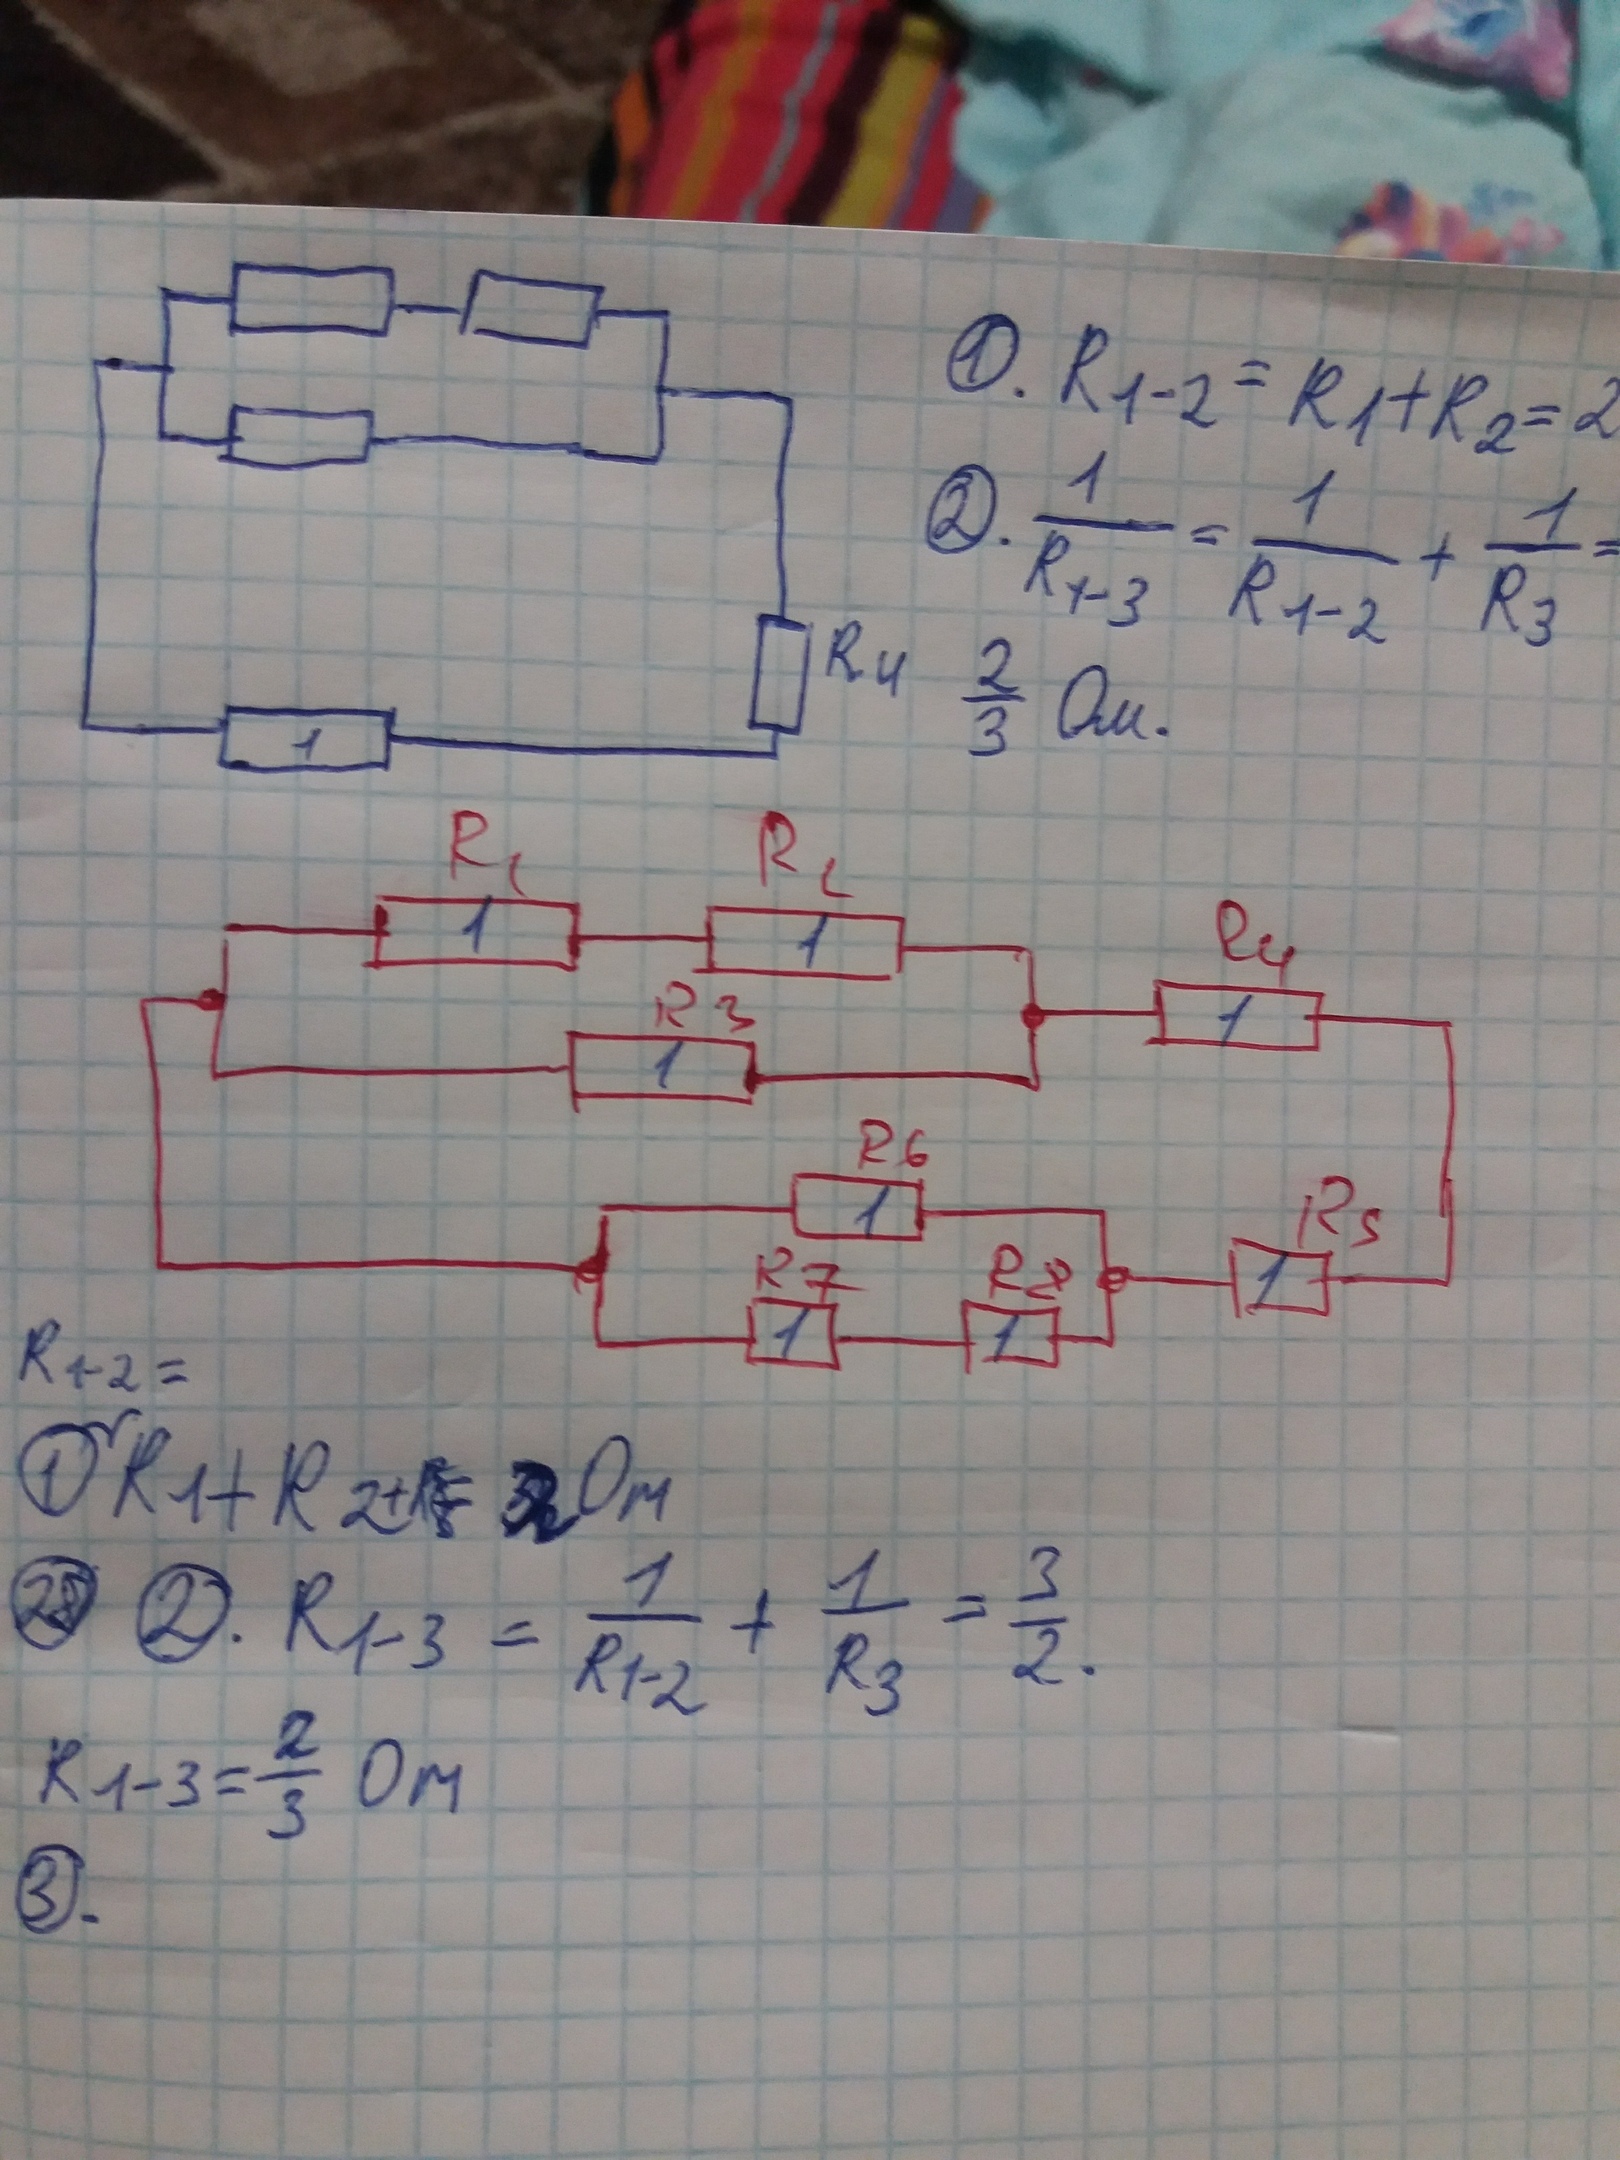 ①. R1-2 = R1+R2=2
②. 1/R1-3 = 1/R1-2 + 1/R3 =
2/3 Ом.
R4
1
R1 R2
1 1
R4
1
R3
1
R6
1
R5
1
R7 R8
1 1
R1-2 =
① R1+R2 = Ом
②. R1-3 = 1/R1-2 + 1/R3 = 3/2.
R1-3 = 2/3 Ом
③.